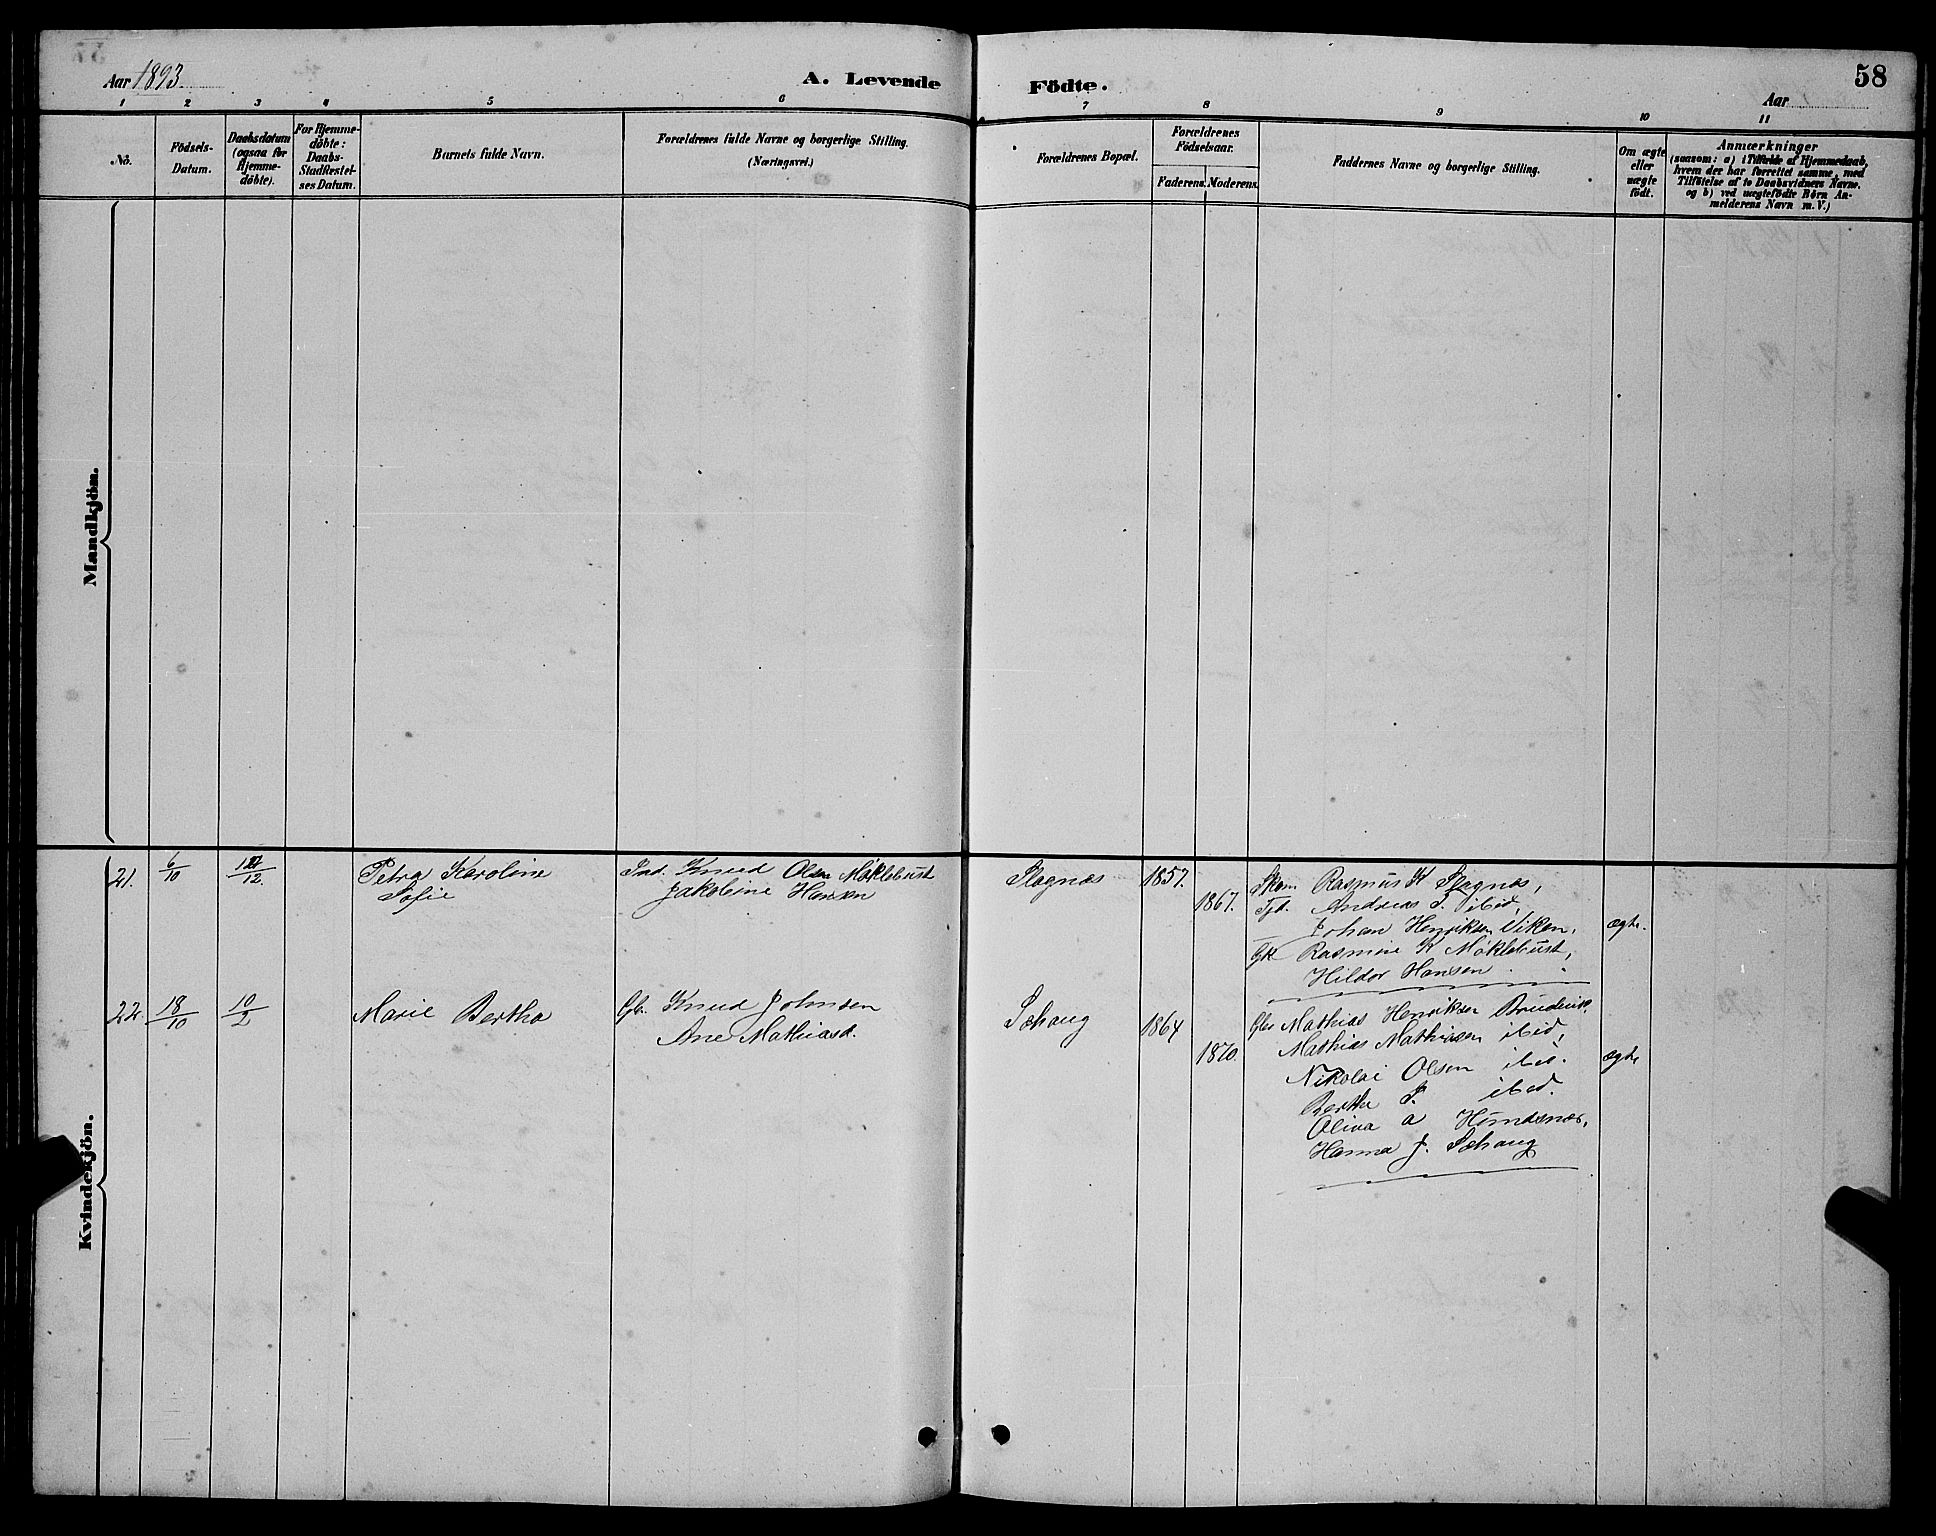 Aar 1893.
A. Levende Födte.
58
Aar
1 2 3 4 5 6 7 8 9 10 11
No.
Födsels-
Datum.
Daabsdatum
(ogsaa for
Hjemme-
döbte).
For Hjemme-
döbte:
Daabs-
Stadfestel-
ses Datum.
Barnets fulde Navn.
Forældrenes fulde Navne og borgerlige Stilling.
(Næringsvei.)
Forældrenes Bopæl.
Forældrenes
Födselsaar.
Faderens. Moderens.
Faddernes Navne og borgerlige Stilling.
Om ægte
eller
uægte
födt.
Anmærkninger
(saasom: a) i Tilfælde af Hjemmedaab,
hvem der har forrettet samme, med
Tilföielse af to Daabsvidners Navne,
og b) ved uægtefödte Börn An-
melderens Navn m. V.)
Mandkjön.
Kvindekjön.
21. 6/10
/12.
Petra Karoline
Sofie
Ind. Knud Olsen Møklebust
Jakobine Hansen
Slagnæs
1857.
1867.
Rasmus K Slagnæs,
Andreas J. ibid,
Johan Henriksen Viken,
Gk Rasmine K Møklebust,
Hildor Hansen
ægte.
22. 18/10 10/2
Marie Bertha
Gb. Knud Johnsen
Ane Mathiasd.
Sæhaug
1864
1870.
Gbr Mathias Henriksen
Mathias Mathiasen ibid,
Nikolai Olsen ibid.
Berthe J. ibid.
Oliva a Hundsnæs,
Hanna J. Sæhaug
ægte